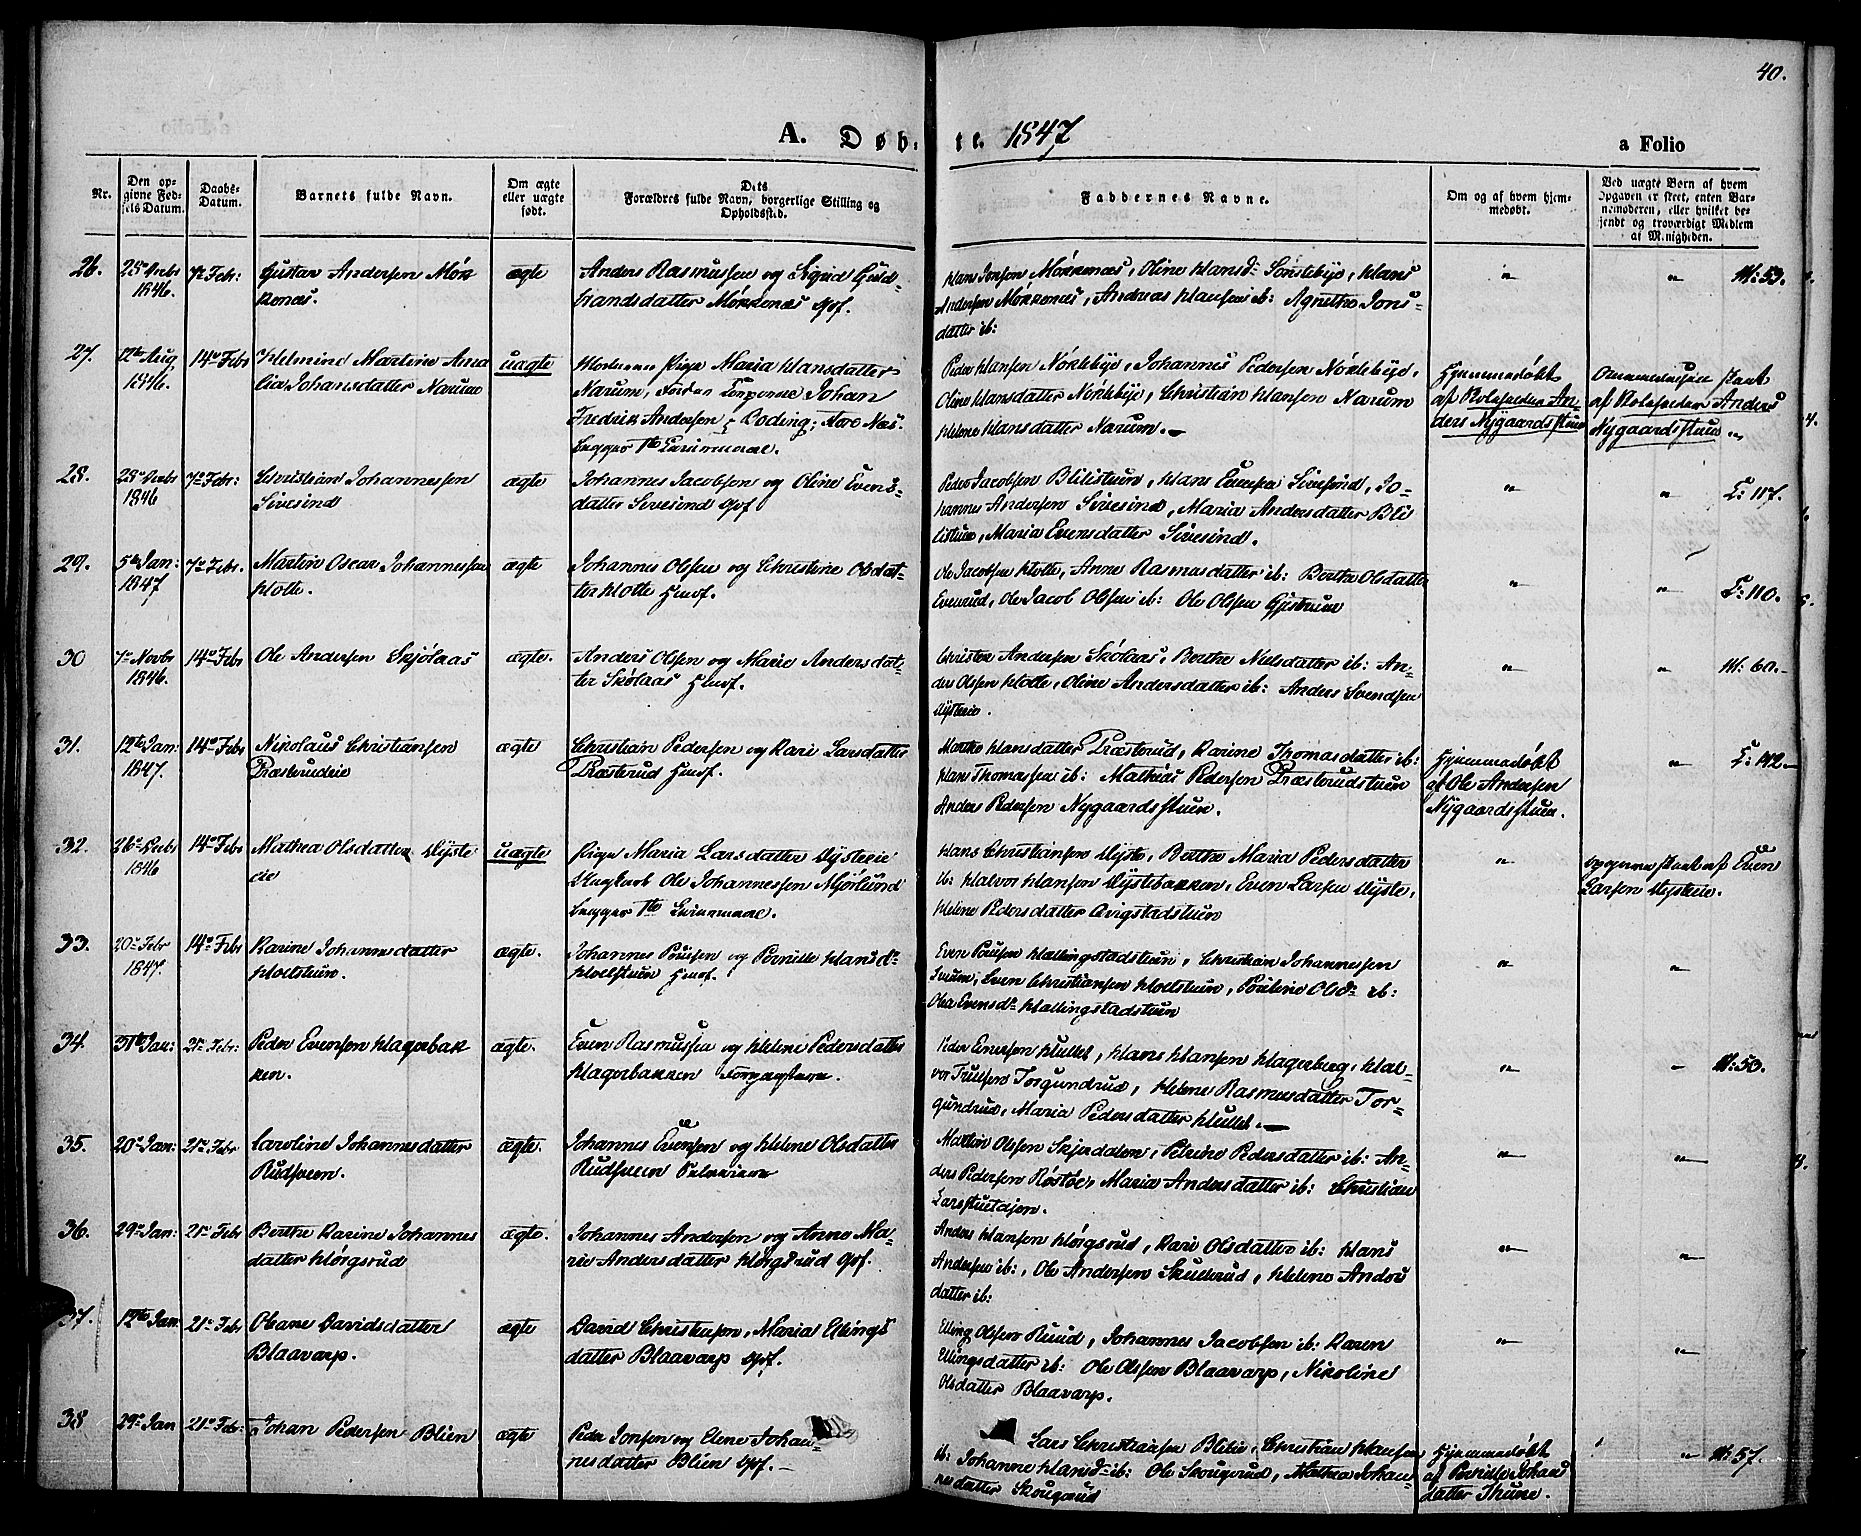 40.
A. Døb-te. 1847
a Folio
Nr.
Den op-
givne Fød-
sels Datum.
Daabs-
Datum.
Barnets fulde Navn.
Om ægte
eller uægte
født.
Dets
Forældres fulde Navn, borgerlige Stilling og
Opholdssted.
Faddernes Navne.
Om og af hvem hjem-
medøbt.
Ved uægte Børn af hvem
Opgaven er skeet, enten Bar-
nemoderen, eller hvilket be-
kjendt og troværdigt Medlem
af Menigheden.
26.
1846.
7de Febr:
Gustav Andersen Møk
kenæs.
ægte
Anders Rasmussen og Sigrid Guld-
brandsdatter Møkkenæs Gbf.
Hans Jonsen Møkkenæs, Oline Hansd: Sønsteby, Hans
Andersen Møkkenæs, Andreas Hansen ib: Agnethe Jons-
datter ib:
"
"
M: 53.
27.
12te Aug
1846.
14de Febr
Helmine Martine Ama
lia Johansdatter Narum
uægte
Moderen Pige Maria Hansdatter
Narum, Faderen Johan
Fredrik Andersen
Begges 1te Leiermaal.
Peder Hansen Nøkleby, Johannes Pedersen Nøkleby,
Oline Hansdatter Nøkleby, Christian Hansen Narum
Helene Hansdatter Narum.
Hjemmedøbt
af An-
ders Nygaardsstuen
af Anders
Nygaardsstuen
28.
1846
7de Febr:
Christian Johannessen
Sivesind
ægte
Johannes Jacobsen og Oline Evens-
datter Sivesind Gbf
Peder Jacobsen Blilistuen, Hans Evensen Sivesind, Jo-
hannes Andersen Sivesind, Maria Andersdatter Bli
listuen, Maria Evensdatter Sivesind.
"
"
L: 117.
29.
5te Jan:
1847
7de Febr.
Martin Oscar Johannessen
Hotte.
ægte
Johannes Olsen og Christine Olsdat-
ter Hotte Husf.
Ole Jacobsen Hotte, Anne Rasmusdatter ib: Berthe Olsdatter
Evenrud, Ole Jacob Olsen ib: Ole Olsen Gjestrum
"
"
L: 110.
30
7de Novbr
1846.
14de Febr
Ole Andersen Skjølaas
ægte.
Anders Olsen og Marie Andersdat-
ter Skølaas Husf.
Christen Andersen Skølaas, Berthe Nielsdatter ib: An-
ders Olsen Hotte, Oline Andersdatter ib: Anders Svendsen
"
"
M: 60.
31.
12te Jan:
1847.
14de Febr
Nikolaus Christiansen
Præsterudeie
ægte
Christian Pedersen og Kari Larsdatter
Præsterud Husf.
Marthe Hansdatter Præsterud, Karine Thomasdatter ib:
Hans Thomassen ib: Mathias Pedersen Præsterudstuen
Anders Pedersen Nygaardsstuen.
Hjemmedøbt
af Ole Andersen
Nygaardsstuen.
"
L: 142.
32.
26de Decbr
1846
14de Febr
Mathea Olsdatter Dyste
eie
uægte
Pige Maria Larsdatter Dysteeie
Ungkarl Ole Johannessen Mjørlund
begges 1te Leiermaal.
Hans Christiansen Dyste, Berthe Maria Pedersdatter
ib: Halvor Hansen Dystebakken, Even Larsen Dyste,
Helene Pedersdatter Avigstadstuen
"
af Even
Larsen Dysteeie.
33.
20de Febr
1847.
14de Febr
Karine Johannesdatter
Holstuen.
ægte.
Johannes Poulsen og Pernille Hansdr
Holstuen Husf.
Even Poulsen Hallingstadstuen, Christian Johannessen
Even Christiansen Holstuen, Pouline Olsdr ib:
Olea Evensdr Hallingstadstuen
"
"
34.
31te Jan:
21de Febr:
Peder Evensen Hagerbak
ken.
ægte.
Even Rasmussen og Helene Pedersdatter
Hagerbakken
Peder Evensen Hullet, Hans Hansen Hagerberg, Hal-
vor Truelsen Torgundrud, Helene Rasmusdatter Tor-
gundrud, Maria Pedersdatter Hullet.
"
"
M: 50.
35.
20de Jan:
21de Febr
Caroline Johannesdatter
Rudsveen.
ægte.
Johannes Evensen og Helene Olsdatter
Rudsveen
Martin Olsen Skjerdalen, Petrine Pedersdatter ib: An-
ders Pedersen Røstøe, Maria Andersdatter ib: Christian
"
"
36.
29de Jan:
21de Febr
Berthe Karine Johannes
datter Hørgsrud
ægte.
Johannes Andersen og Anne Ma-
rie Andersdatter Hørgsrud Gbf.
Anders Hansen Hørgsrud, Kari Olsdatter ib: Hans
Andersen ib:, Ole Andersen Skullerud, Helene Anders
datter ib:
"
"
37.
12te Jan
21de Febr
Oleane Davidsdatter
Blaavarp.
ægte
David Christiansen, Maria Ellings
datter Blaavarp Gbf.
Elling Olsen Ruud, Johannes Jacobsen ib: Karen
Ellingsdatter ib: Ole Olsen Blaavarp, Nikoline
Olsdatter Blaavarp.
"
"
38
29de Jan
21de Febr:
Johan Pedersen Blien
ægte
Peder Jonsen og Elene Johan-
nesdatter Blien Gbf.
Lars Christiansen Blilie, Christian Hansen
ib: Johanne Hansdr ib: Ole Skougerud, Mathea Johan-
nesdatter Skougerud
Hjemmedøbt
af Pernille Johans
datter Thune.
"
M: 57.